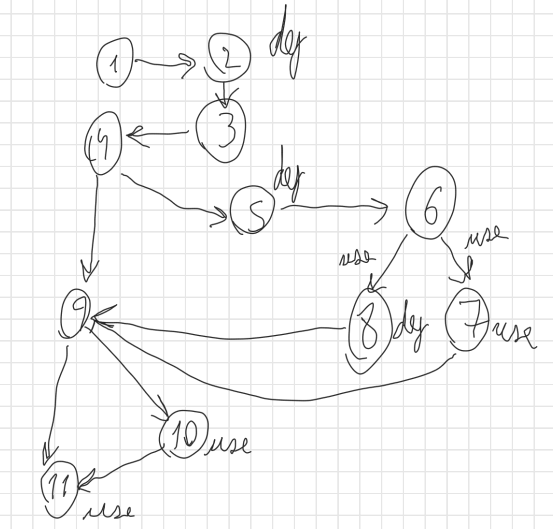 1 2 def
4 3
5 def 6
use use
9 8 def 7 use
10 use
11 use